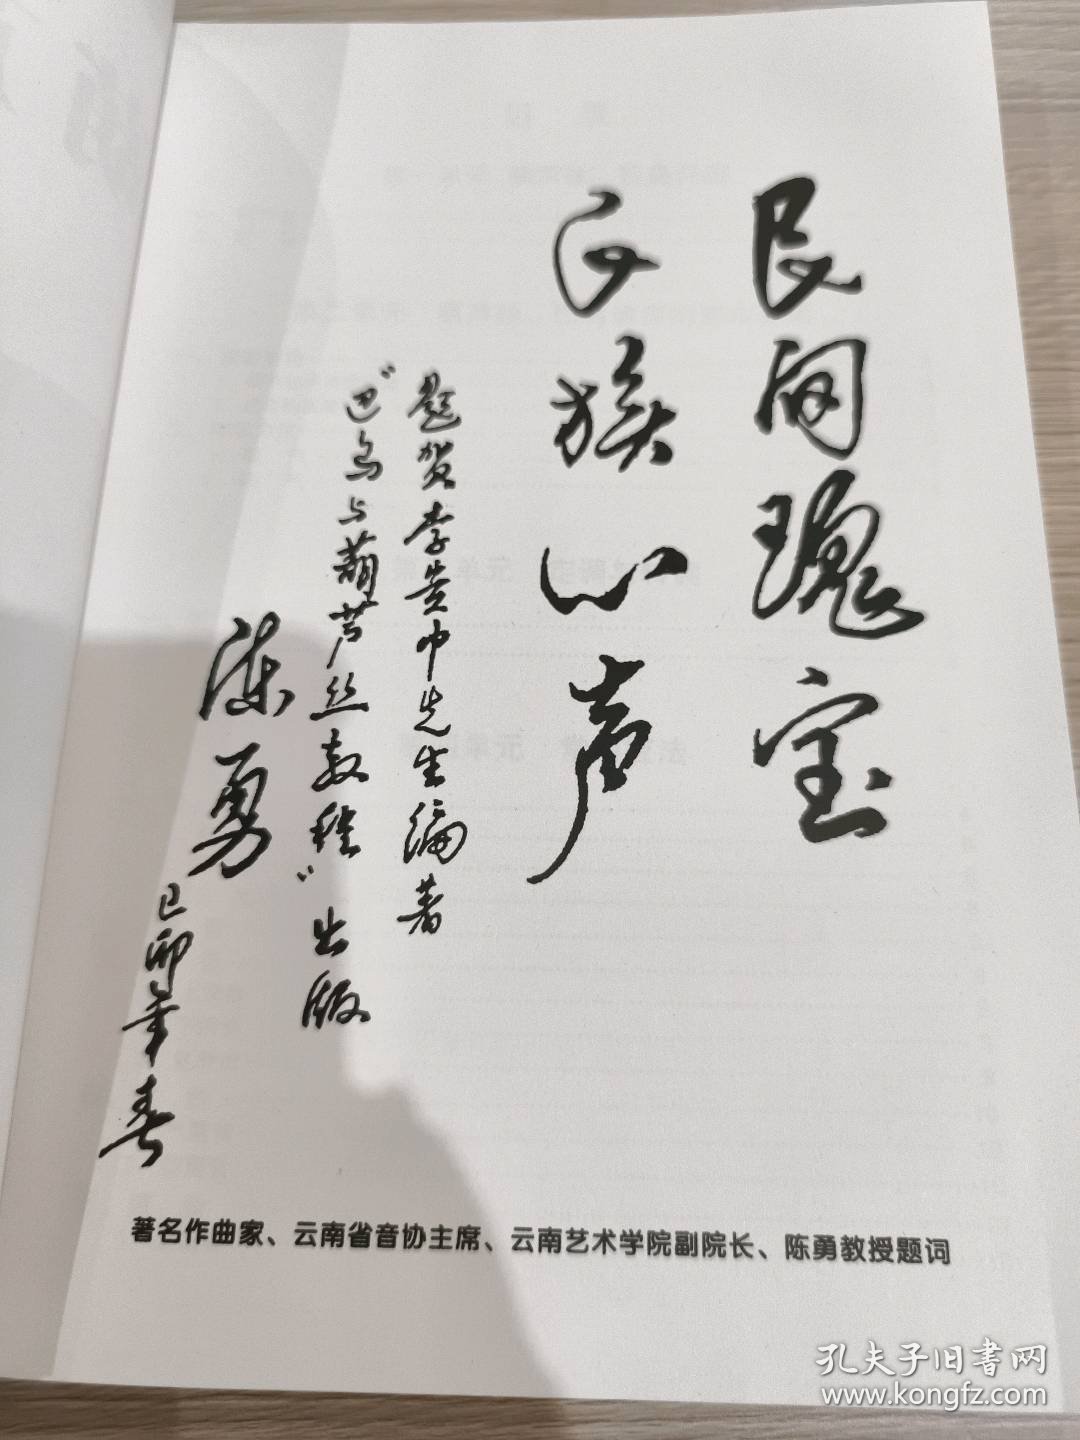 民间瑰宝
民族心声
题贺李贵中先生编著
"巴乌与葫芦丝教程"出版
陈勇
己卯年春
著名作曲家、云南省音协主席、云南艺术学院副院长、陈勇教授题词
孔夫子旧书网
www.kongfz.com